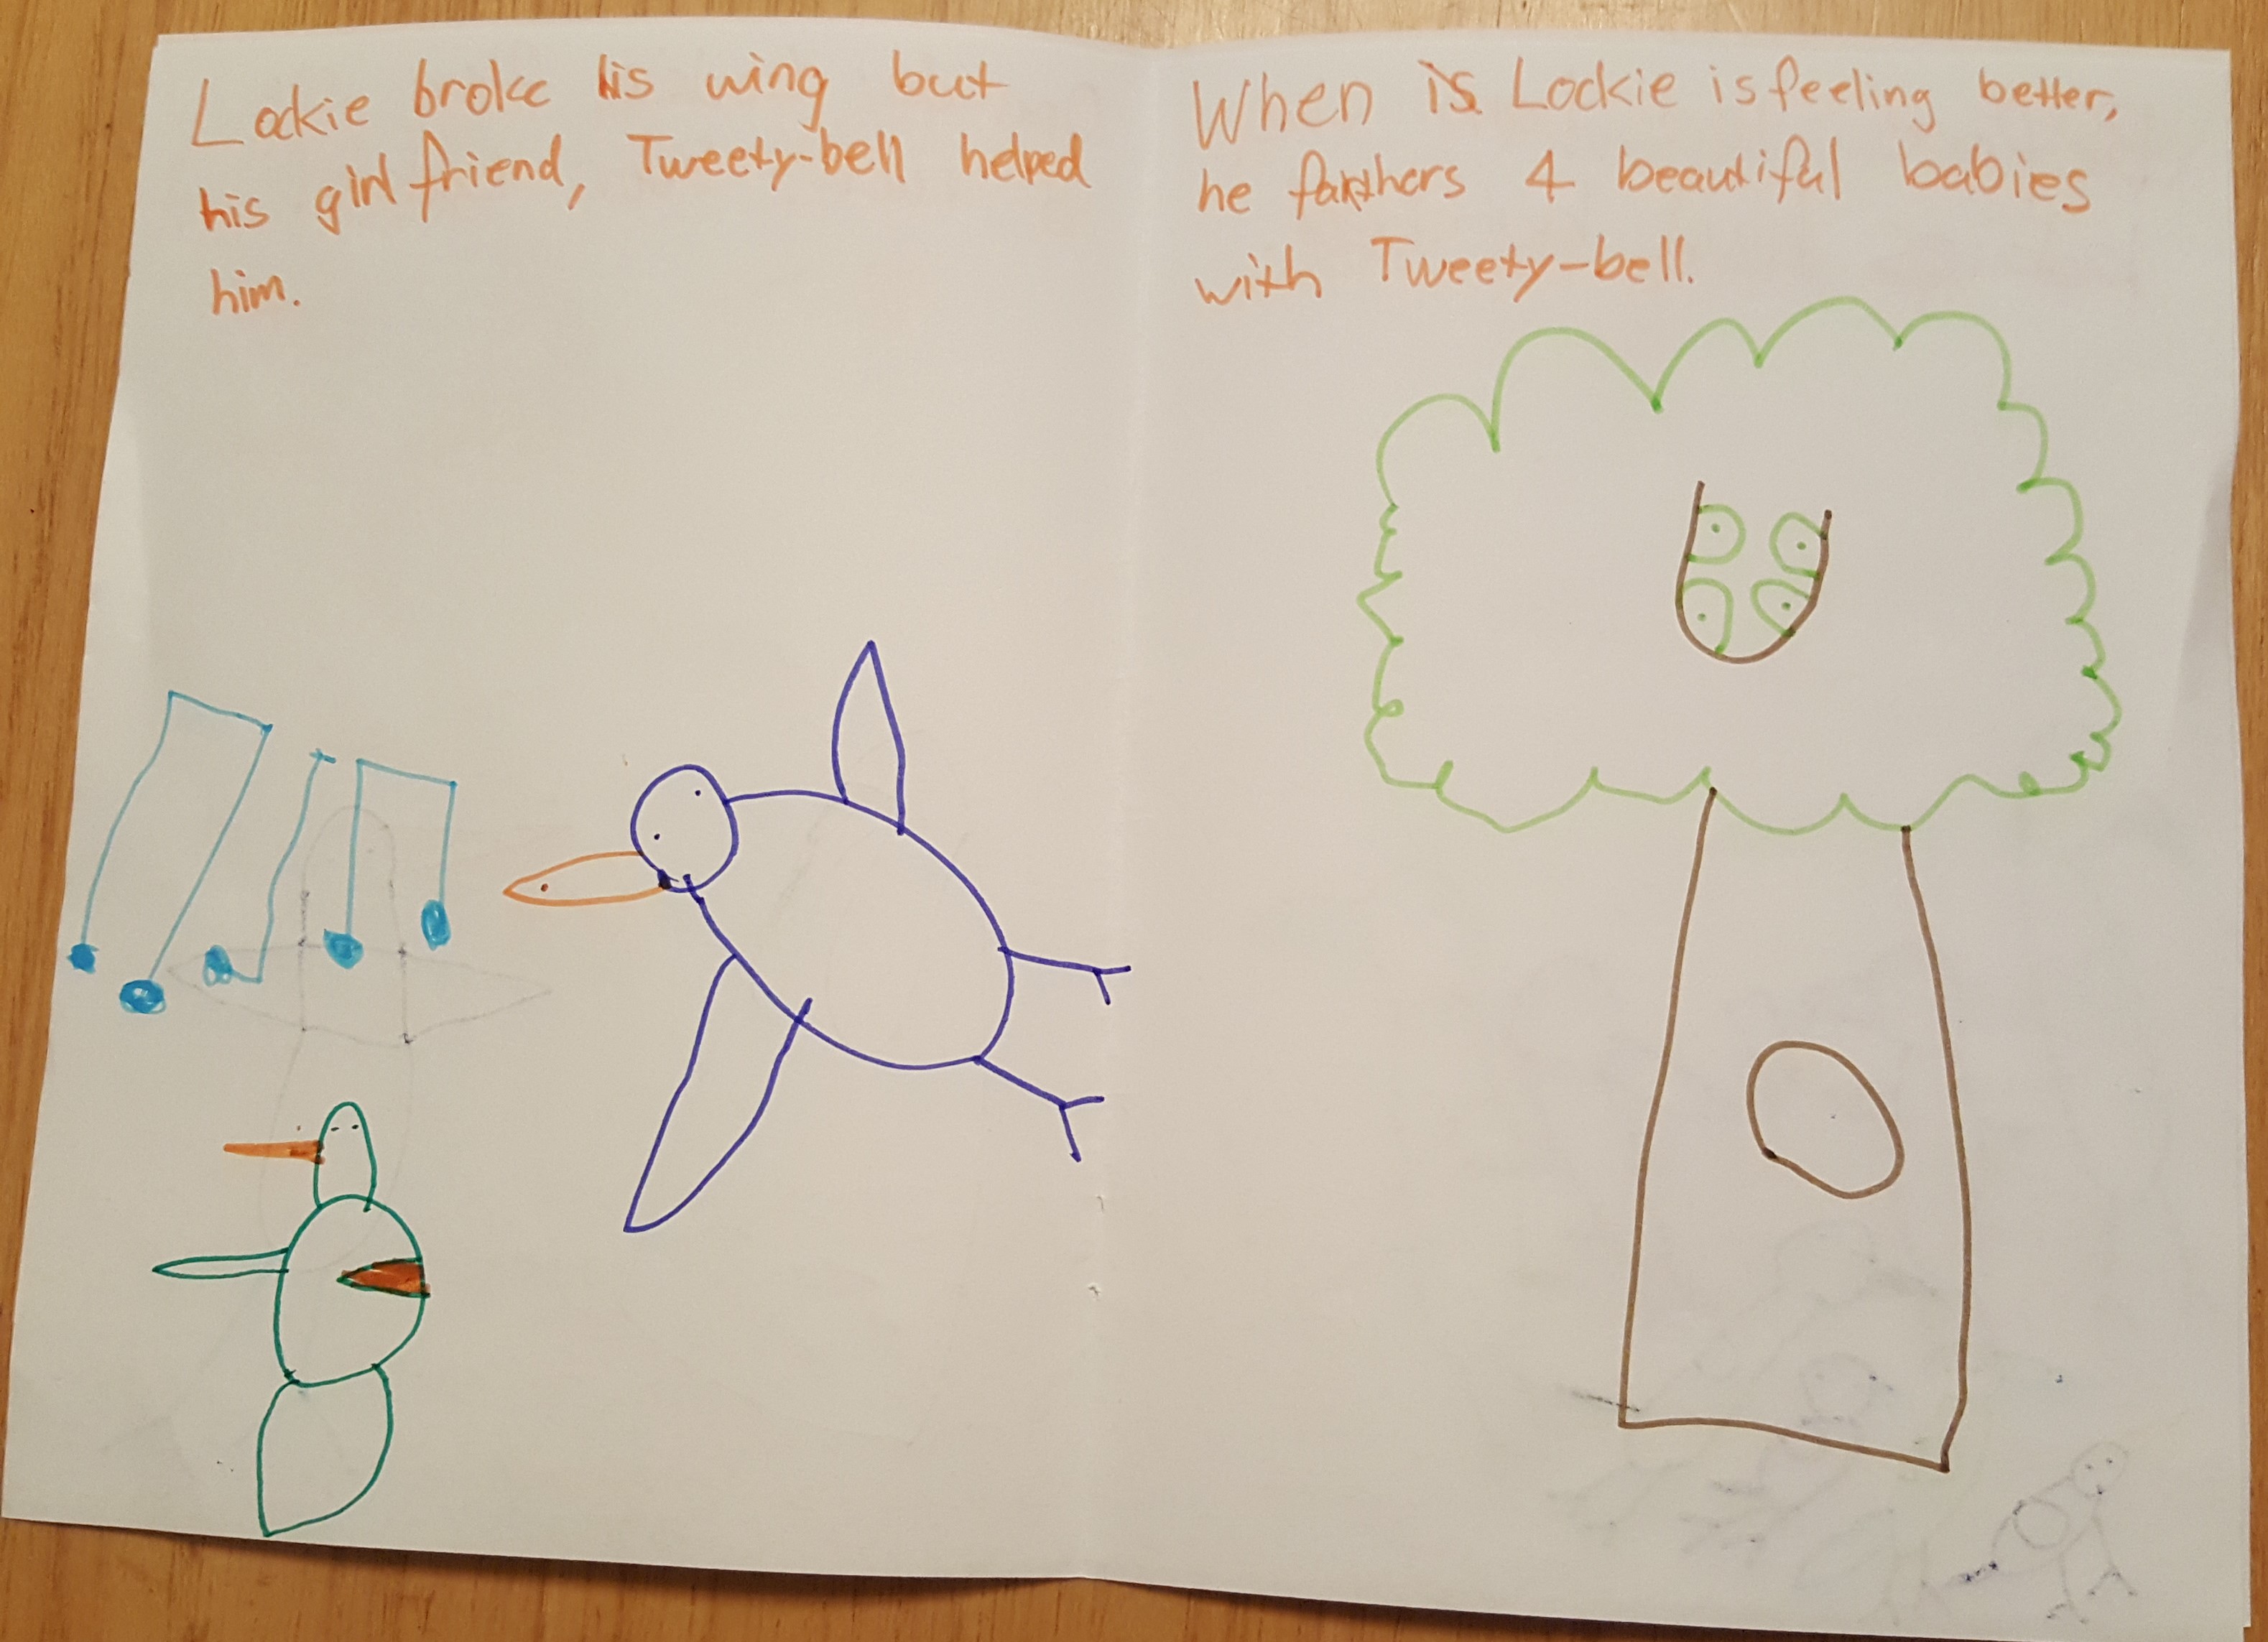 Lockie broke his wing but
his girlfriend, Tweety-bell helped
him.
When is Lockie is feeling better,
he farthers 4 beautiful babies
with Tweety-bell.